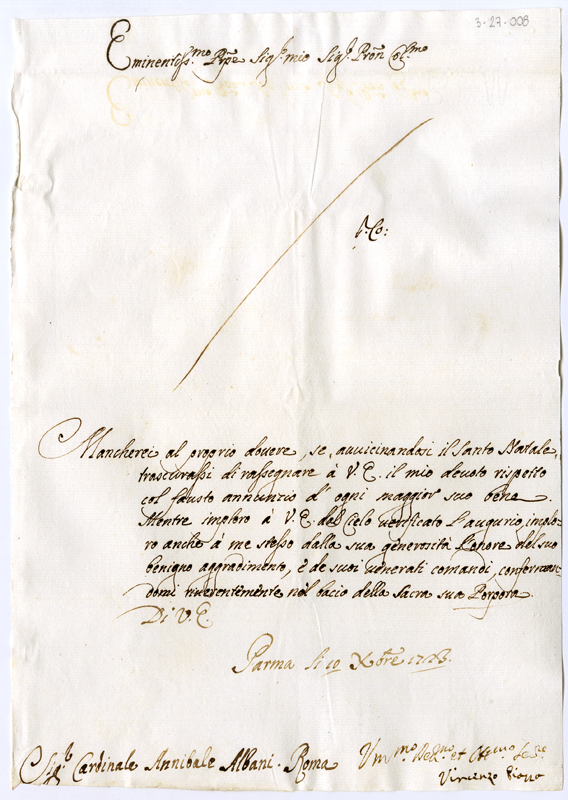 3-27-008
Eminentiss.mo Prpe Sig.r mio Sig.r Pron Col.mo
Mancherei al proprio dovere, se, avvicinandosi il Santo Natale,
trascurassi di rassegnare à V.E. il mio devoto rispetto
col fausto annunzio d'ogni maggior suo bene.
Mentre imploro à V.E. del Cielo verificato l'augurio, implo-
ro anche à me stesso dalla sua generosità l'onore del suo
benigno aggradimento, è de suoi venerati comandi, conferman-
domi riverentemente nel bacio della Sacra sua Porpora.
Di V.E.
Parma li 10 Xbre
Sig.r Cardinale Annibale Albani. Roma
Vm.mo
Vincenzo